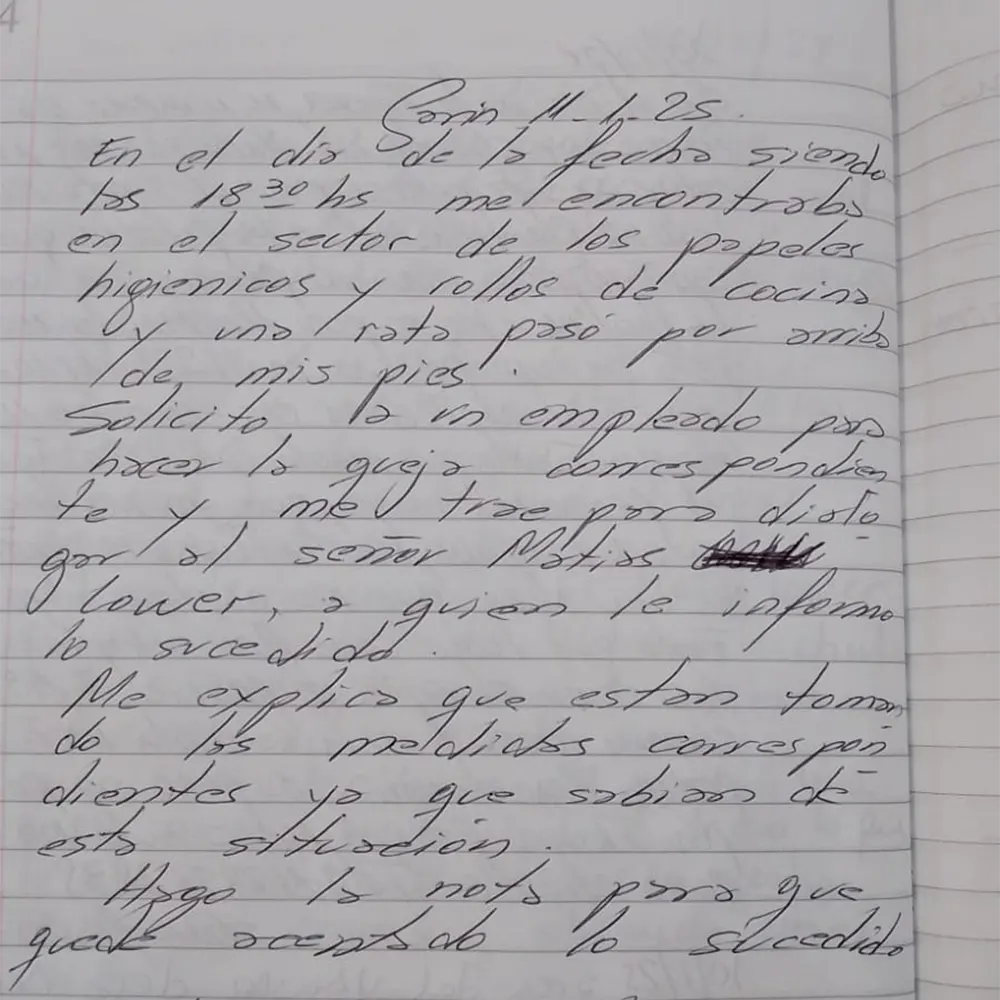 Garin 11-1-25.
En el dia de la fecha siendo
las 18 30 hs me encontraba
en el sector de los papeles
higienicos y rollos de cocina
y una rata pasó por arriba
de mis pies.
Solicito a un empleado para
hacer la queja correspondien
te y me trae para dialo
gar al señor Matias
lower, a quien le informo
lo sucedido.
Me explica que estan toman
do las medidas correspon
dientes ya que sabian de
esta situación.
Hago la nota para que
quede acentado lo sucedido